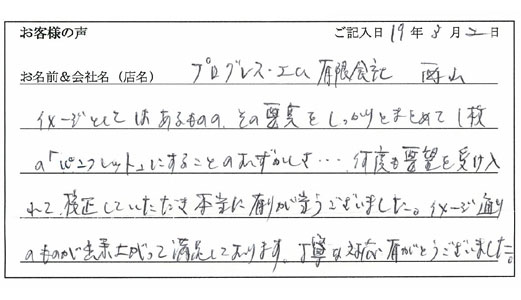 お客様の声 ご記入日 19年 3月 2日
お名前&会社名(店名) プログレス・エム 有限会社 西山
イメージとしてはあるものの、その要点をしっかりとまとめて1枚
の「パンフレット」にすることのむずかしさ… 何度も要望を受け入
れて、校正していただき本当に有りが当うございました。イメージ通り
のものが出来上がって満足しております。丁寧な対応有がとうございました。